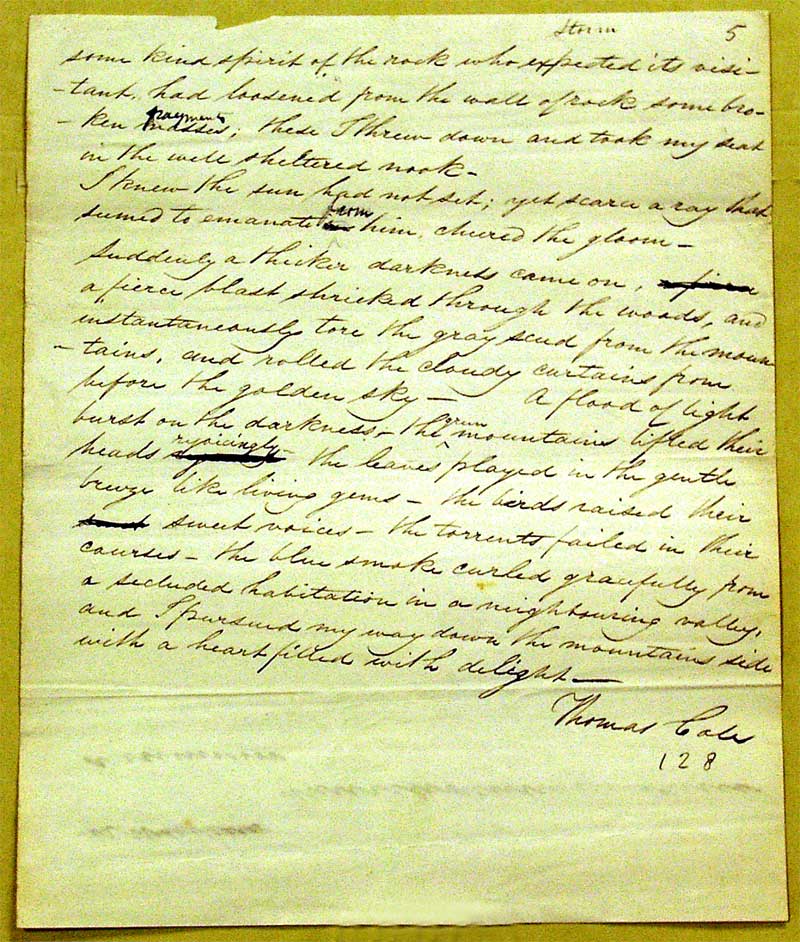 Storm 5
some kind spirit of the rock who expected its visi-
-tant, had loosened from the wall of rock some bro-
fragments
-ken masses; these I threw down and took my seat
in the well sheltered nook-
I knew the sun had not set; yet scarce a ray that
from
seemed to emanate him, cheered the gloom-
Suddenly a thicker darkness came on,
a fierce blast shrieked through the woods, and
instantaneously tore the gray scud from the moun
-tains, and rolled the cloudy curtains from
before the golden sky- A flood of light
burst on the darkness- the mountains lifted their
rejoicingly
heads - the leaves played in the gentle
breeze like living gems- the birds raised their
sweet voices- the torrents failed in their
courses- the blue smoke curled gracefully from
a secluded habitation in a neighbouring valley,
and I pursued my way down the mountains side
with a heart filled with delight-
Thomas Cole
128